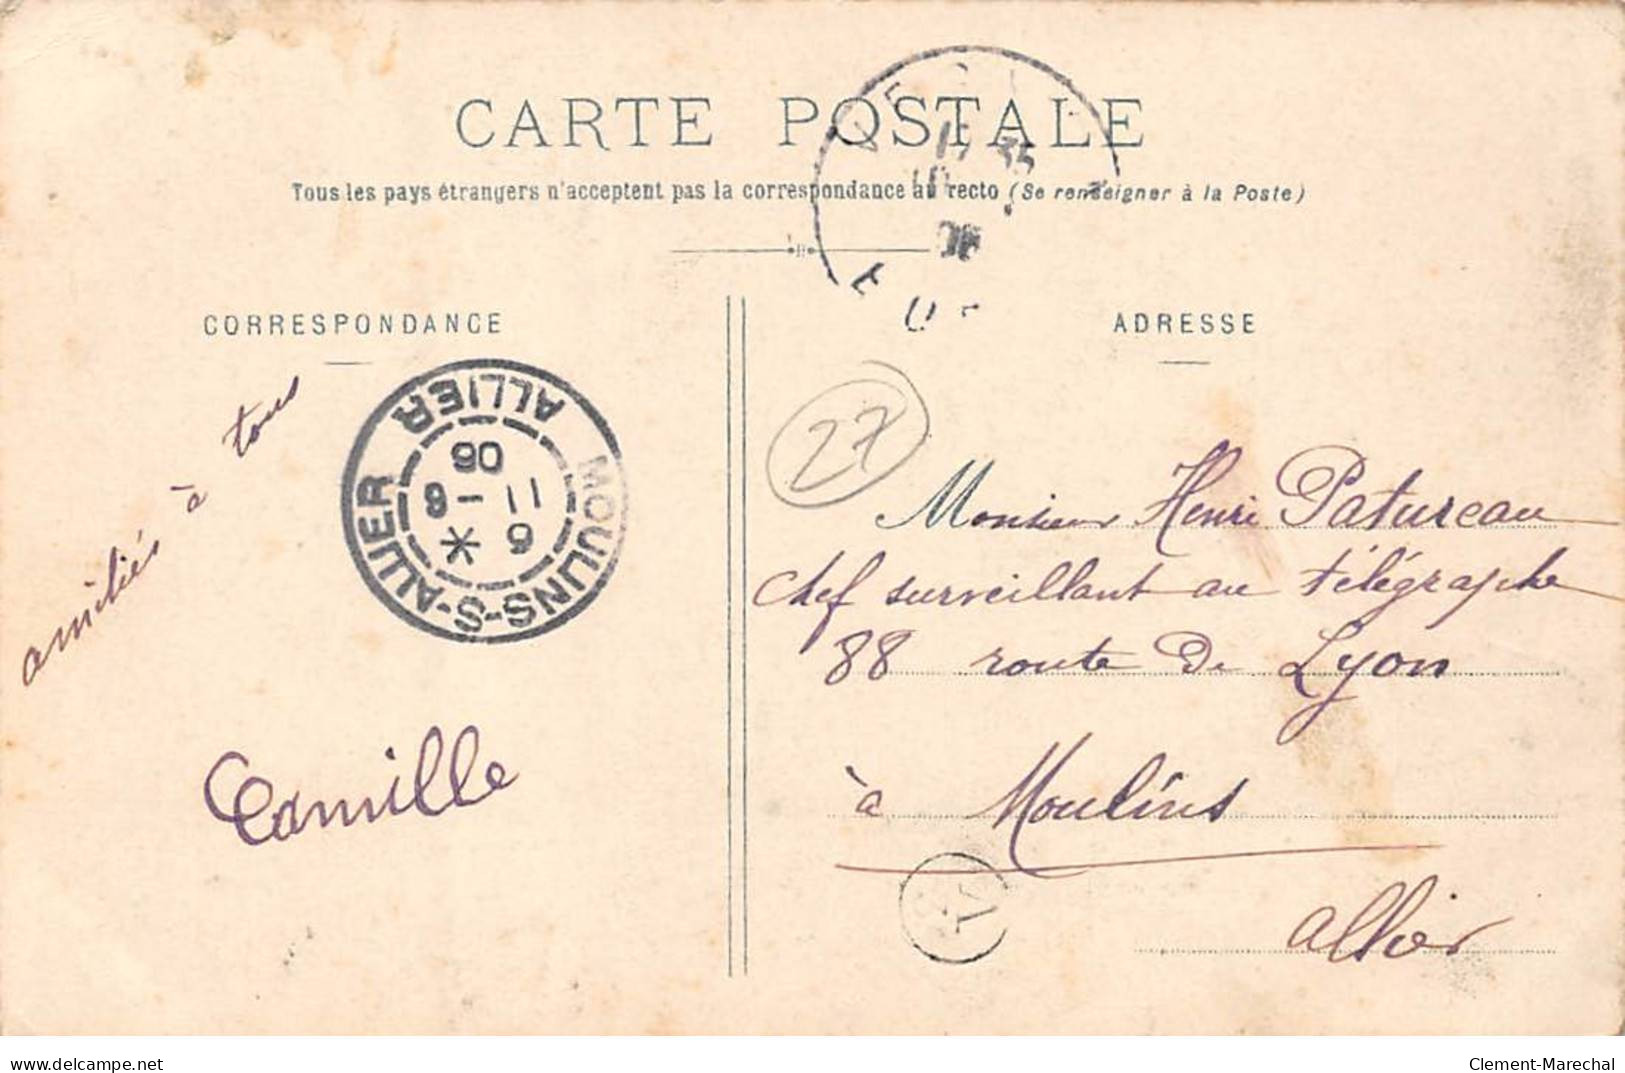 CARTE POSTALE
Tous les pays étrangers n'acceptent pas la correspondance au recto (Se renseigner à la Poste)
CORRESPONDANCE
ADRESSE
amitiés à tous
Camille
MOULINS-S-ALLIER
ALLIER
9 *
11 - 6
06
27
Monsieur Henri Patureau
chef surveillant au télégraphe
88 route de Lyon
à Moulins
allier
delcampe.net
Clement-Marechal